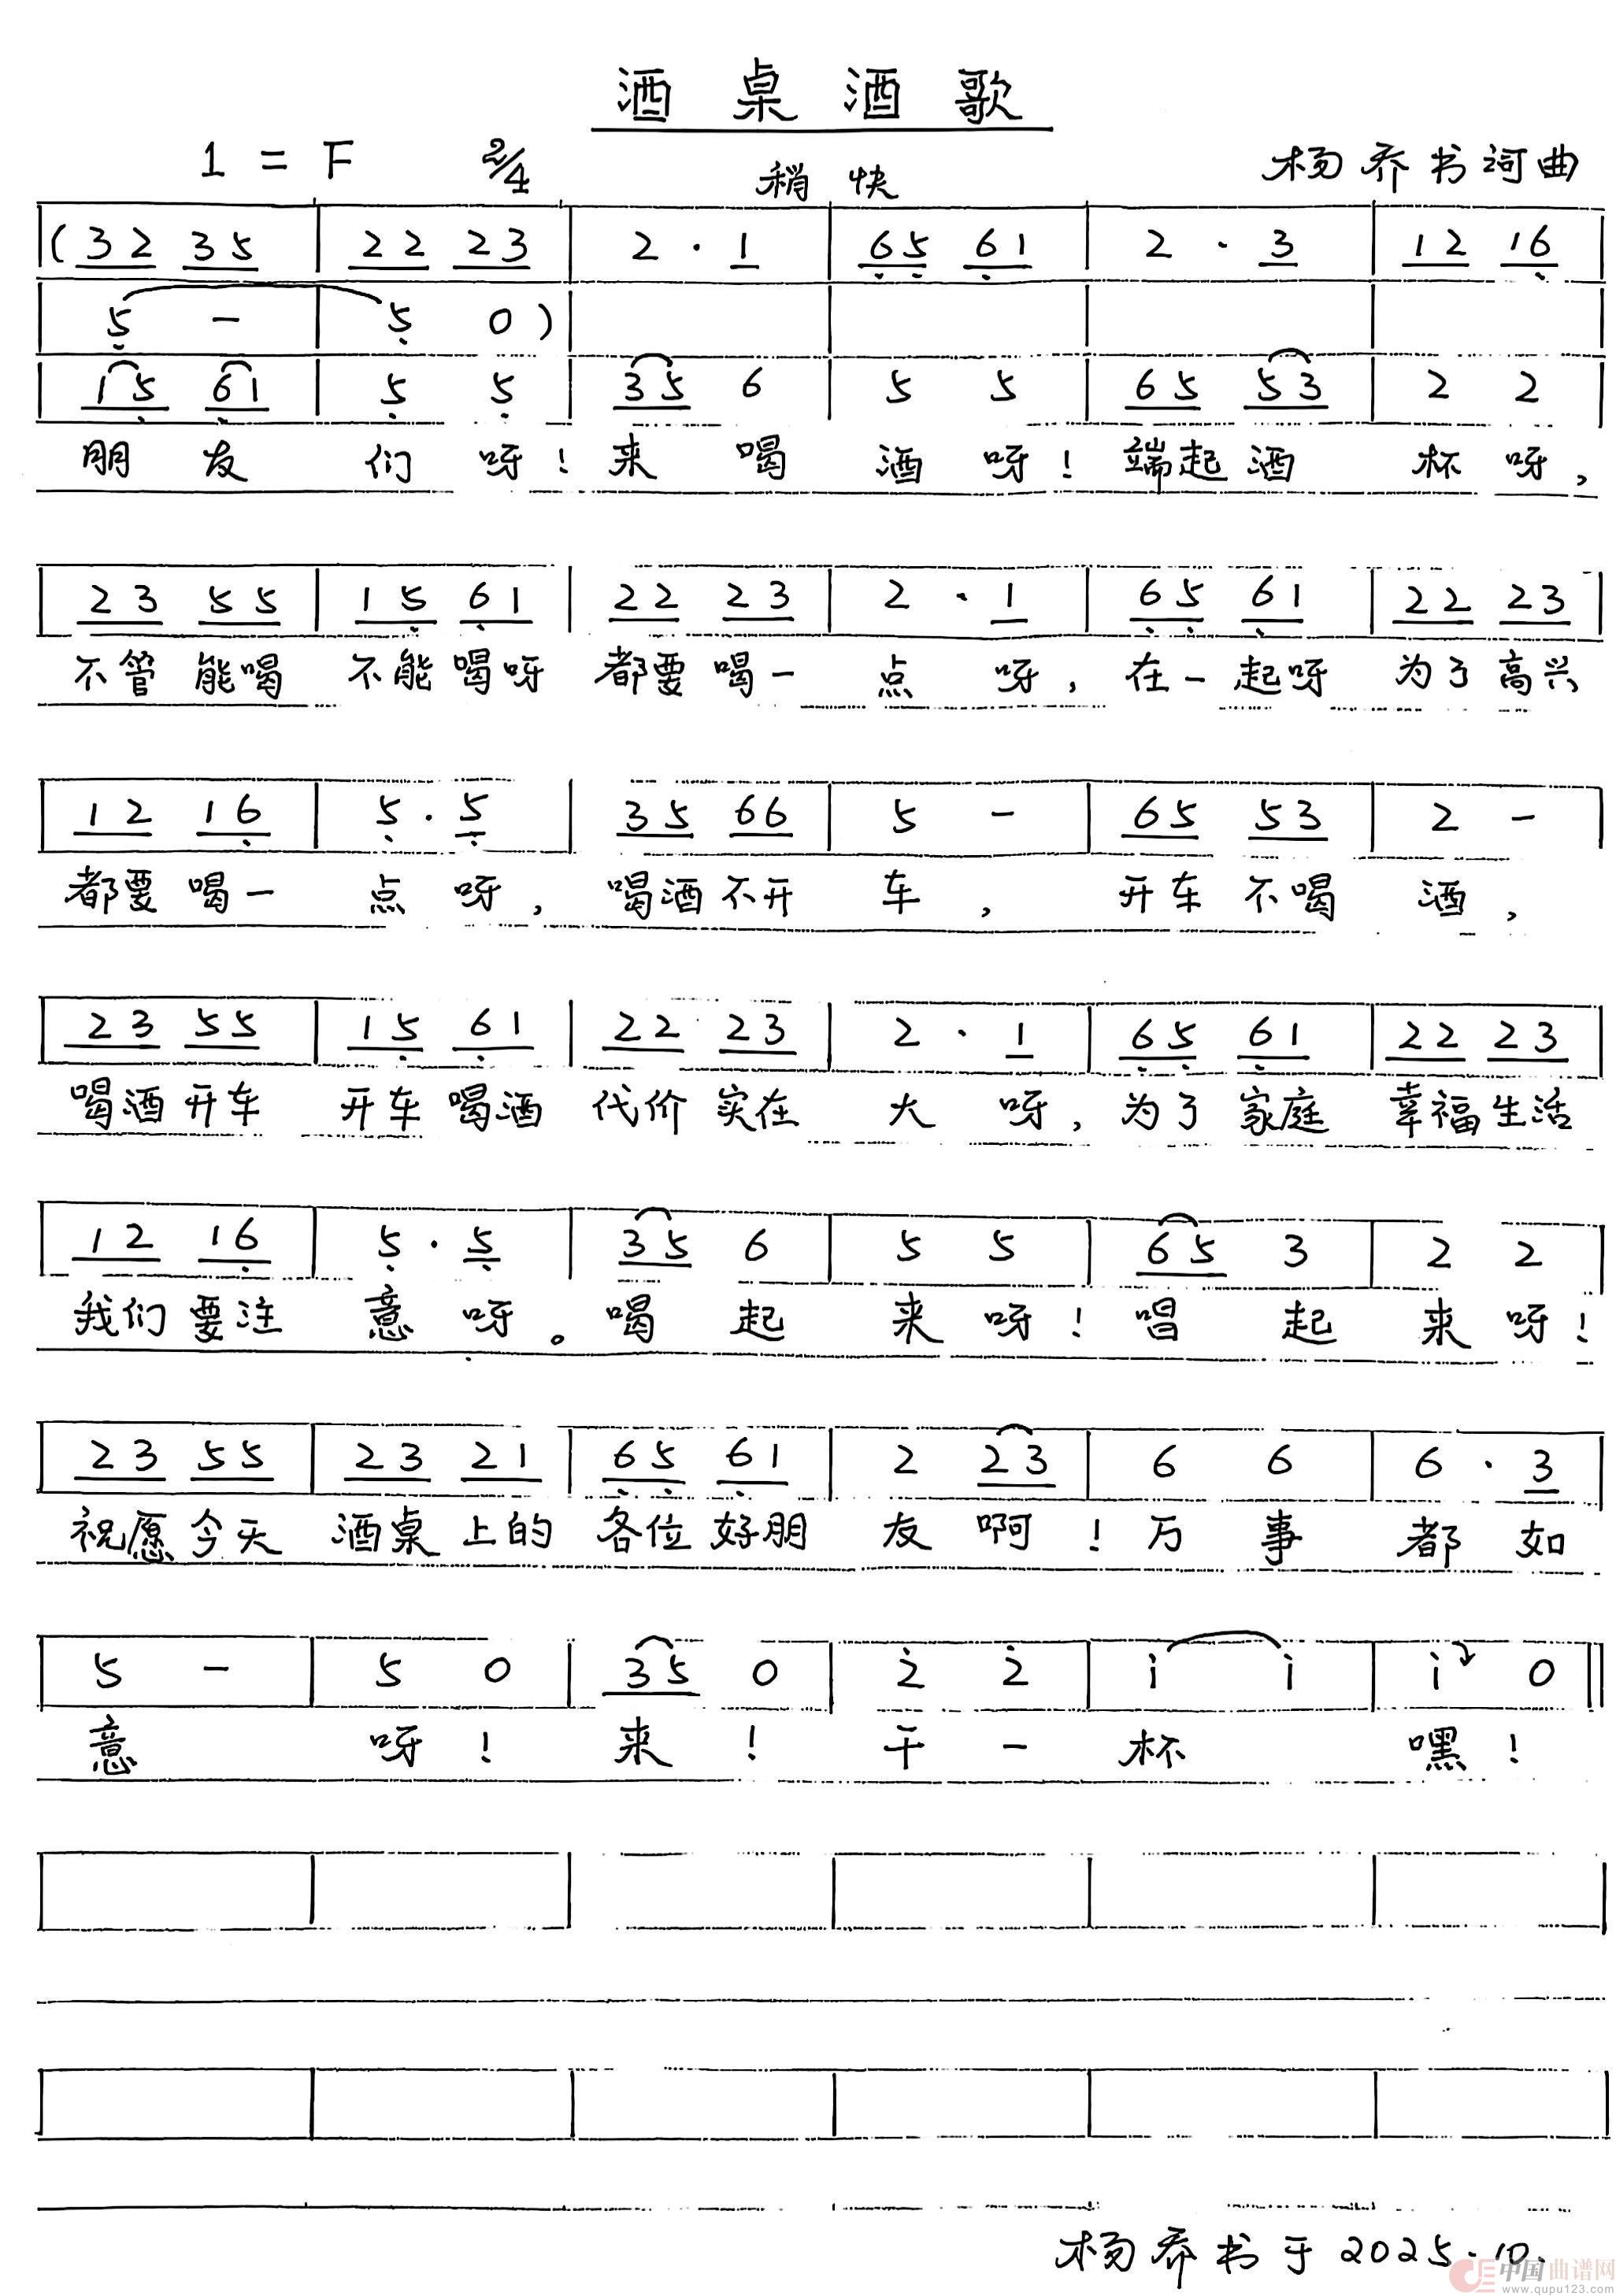 酒桌酒歌
1 = F 2/4 稍快 杨乔书词曲
|(32 35 | 22 23 | 2 · 1 | 65 61 | 2 · 3 | 12 16 |
| 5 - | 5 0 ) | | | | |
| 15 61 | 5 5 | 35 6 | 5 5 | 65 53 | 2 2 |
朋友们呀！来喝酒呀！端起酒杯呀，
| 23 55 | 15 61 | 22 23 | 2 · 1 | 65 61 | 22 23 |
不管能喝不能喝呀都要喝一点呀，在一起呀为了高兴
| 12 16 | 5 · 5 | 35 66 | 5 - | 65 53 | 2 - |
都要喝一点呀，喝酒不开车，开车不喝酒，
| 23 55 | 15 61 | 22 23 | 2 · 1 | 65 61 | 22 23 |
喝酒开车开车喝酒代价实在大呀，为了家庭幸福生活
| 12 16 | 5 · 5 | 35 6 | 5 5 | 65 3 | 2 2 |
我们要注意呀。喝起来呀！唱起来呀！
| 23 55 | 23 21 | 65 61 | 2 23 | 6 6 | 6 · 3 |
祝愿今天酒桌上的各位好朋友啊！万事都如
| 5 - | 5 0 | 35 0 | 2̇ 2̇ | i i | i 0 ‖
意呀！来！干一杯嘿！
杨乔书于2025.10.
中国曲谱网
www.qupu123.com